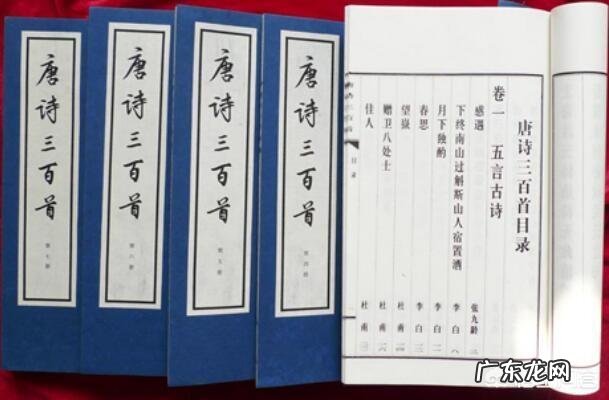 唐诗三百首
第七册
唐诗三百首
第六册
唐诗三百首
第五册
唐诗三百首
第四册
唐诗三百首目录
卷一 五言古诗
感遇 张九龄
下终南山过斛斯山人宿置酒 李白 八
月下独酌 李白
春思 李白
望嶽 杜甫
赠卫八处士 杜甫
佳人 杜甫
目录
广东龙网